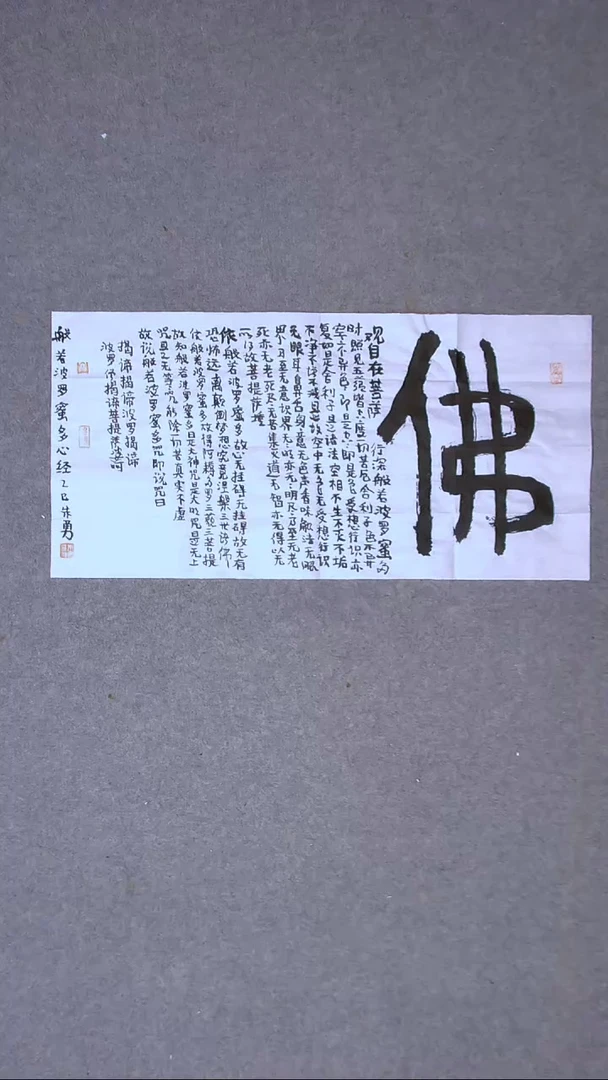 佛
观自在菩萨行深般若波罗蜜多
时照见五蕴皆空度一切苦厄舍利子色不异
空空不异色色即是空空即是色受想行识亦
复如是舍利子是诸法空相不生不灭不垢
不净不增不减是故空中无色无受想行识
无眼耳鼻舌身意无色声香味触法无眼
界乃至无意识界无无明亦无无明尽乃至无老
死亦无老死尽无苦集灭道无智亦无得以无
所得故菩提萨埵
依般若波罗蜜多故心无挂碍无挂碍故无有
恐怖远离颠倒梦想究竟涅槃三世诸佛
依般若波罗蜜多故得阿耨多罗三藐三菩提
故知般若波罗蜜多是大神咒是大明咒是无上
咒是无等等咒能除一切苦真实不虚
故说般若波罗蜜多咒即说咒曰
揭谛揭谛波罗揭谛
波罗僧揭谛菩提萨婆诃
般若波罗蜜多心经乙巳朱勇